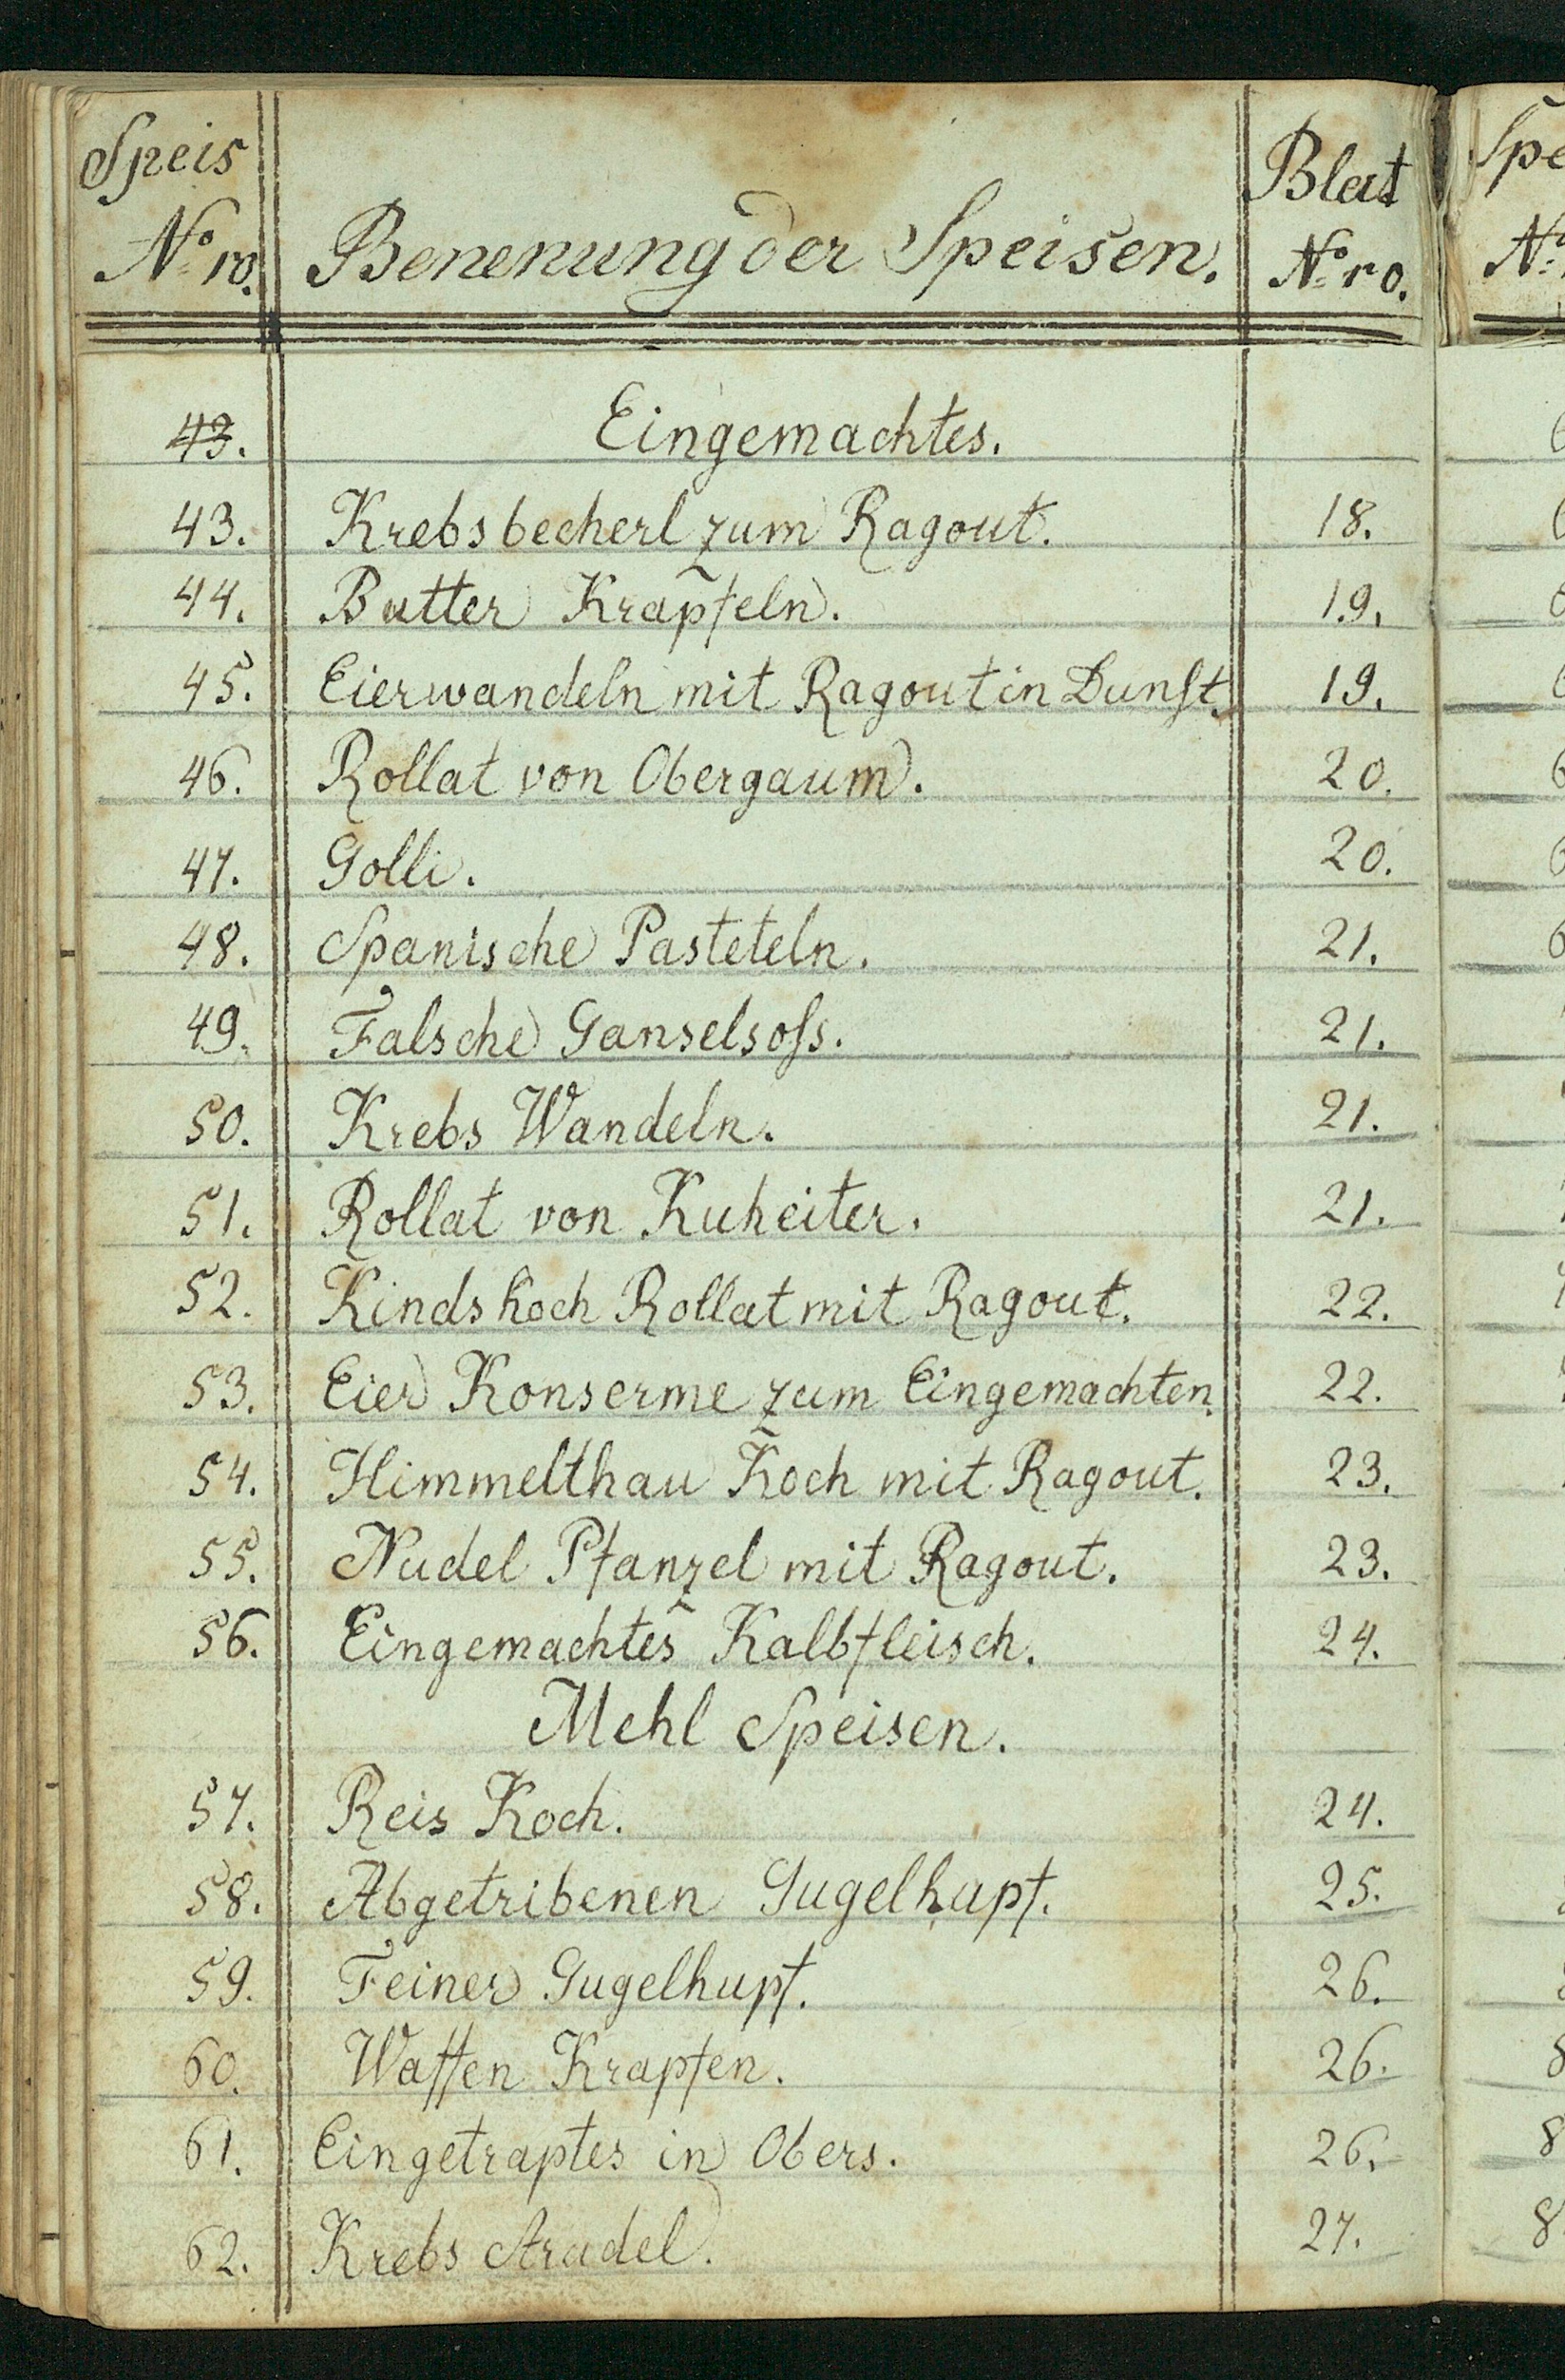 Speis
Nº ro. Benenung der Speisen. Blat Nº ro.
43. Eingemachtes.
43. Krebsbecherl zum Ragout. 18.
44. Butter Krapfeln. 19.
45. Eierwandeln mit Ragout in Dunst. 19.
46. Rollat von Obergaum. 20.
47. Golli. 20.
48. Spanische Pasteteln. 21.
49. Falsche Ganselsoss. 21.
50. Krebs Wandeln. 21.
51. Rollat von Kuheiter. 21.
52. Kindskoch Rollat mit Ragout. 22.
53. Eier Konserme zum Eingemachten. 22.
54. Himmelthau Koch mit Ragout. 23.
55. Nudel Pfanzel mit Ragout. 23.
56. Eingemachtes Kalbfleisch. 24.
Mehl Speisen.
57. Reis Koch. 24.
58. Abgetribenen Gugelhupf. 25.
59. Feiner Gugelhupf. 26.
60. Waffen Krapfen. 26.
61. Eingetraptes in Obers. 26.
62. Krebs Strudel. 27.
Spe
Nº